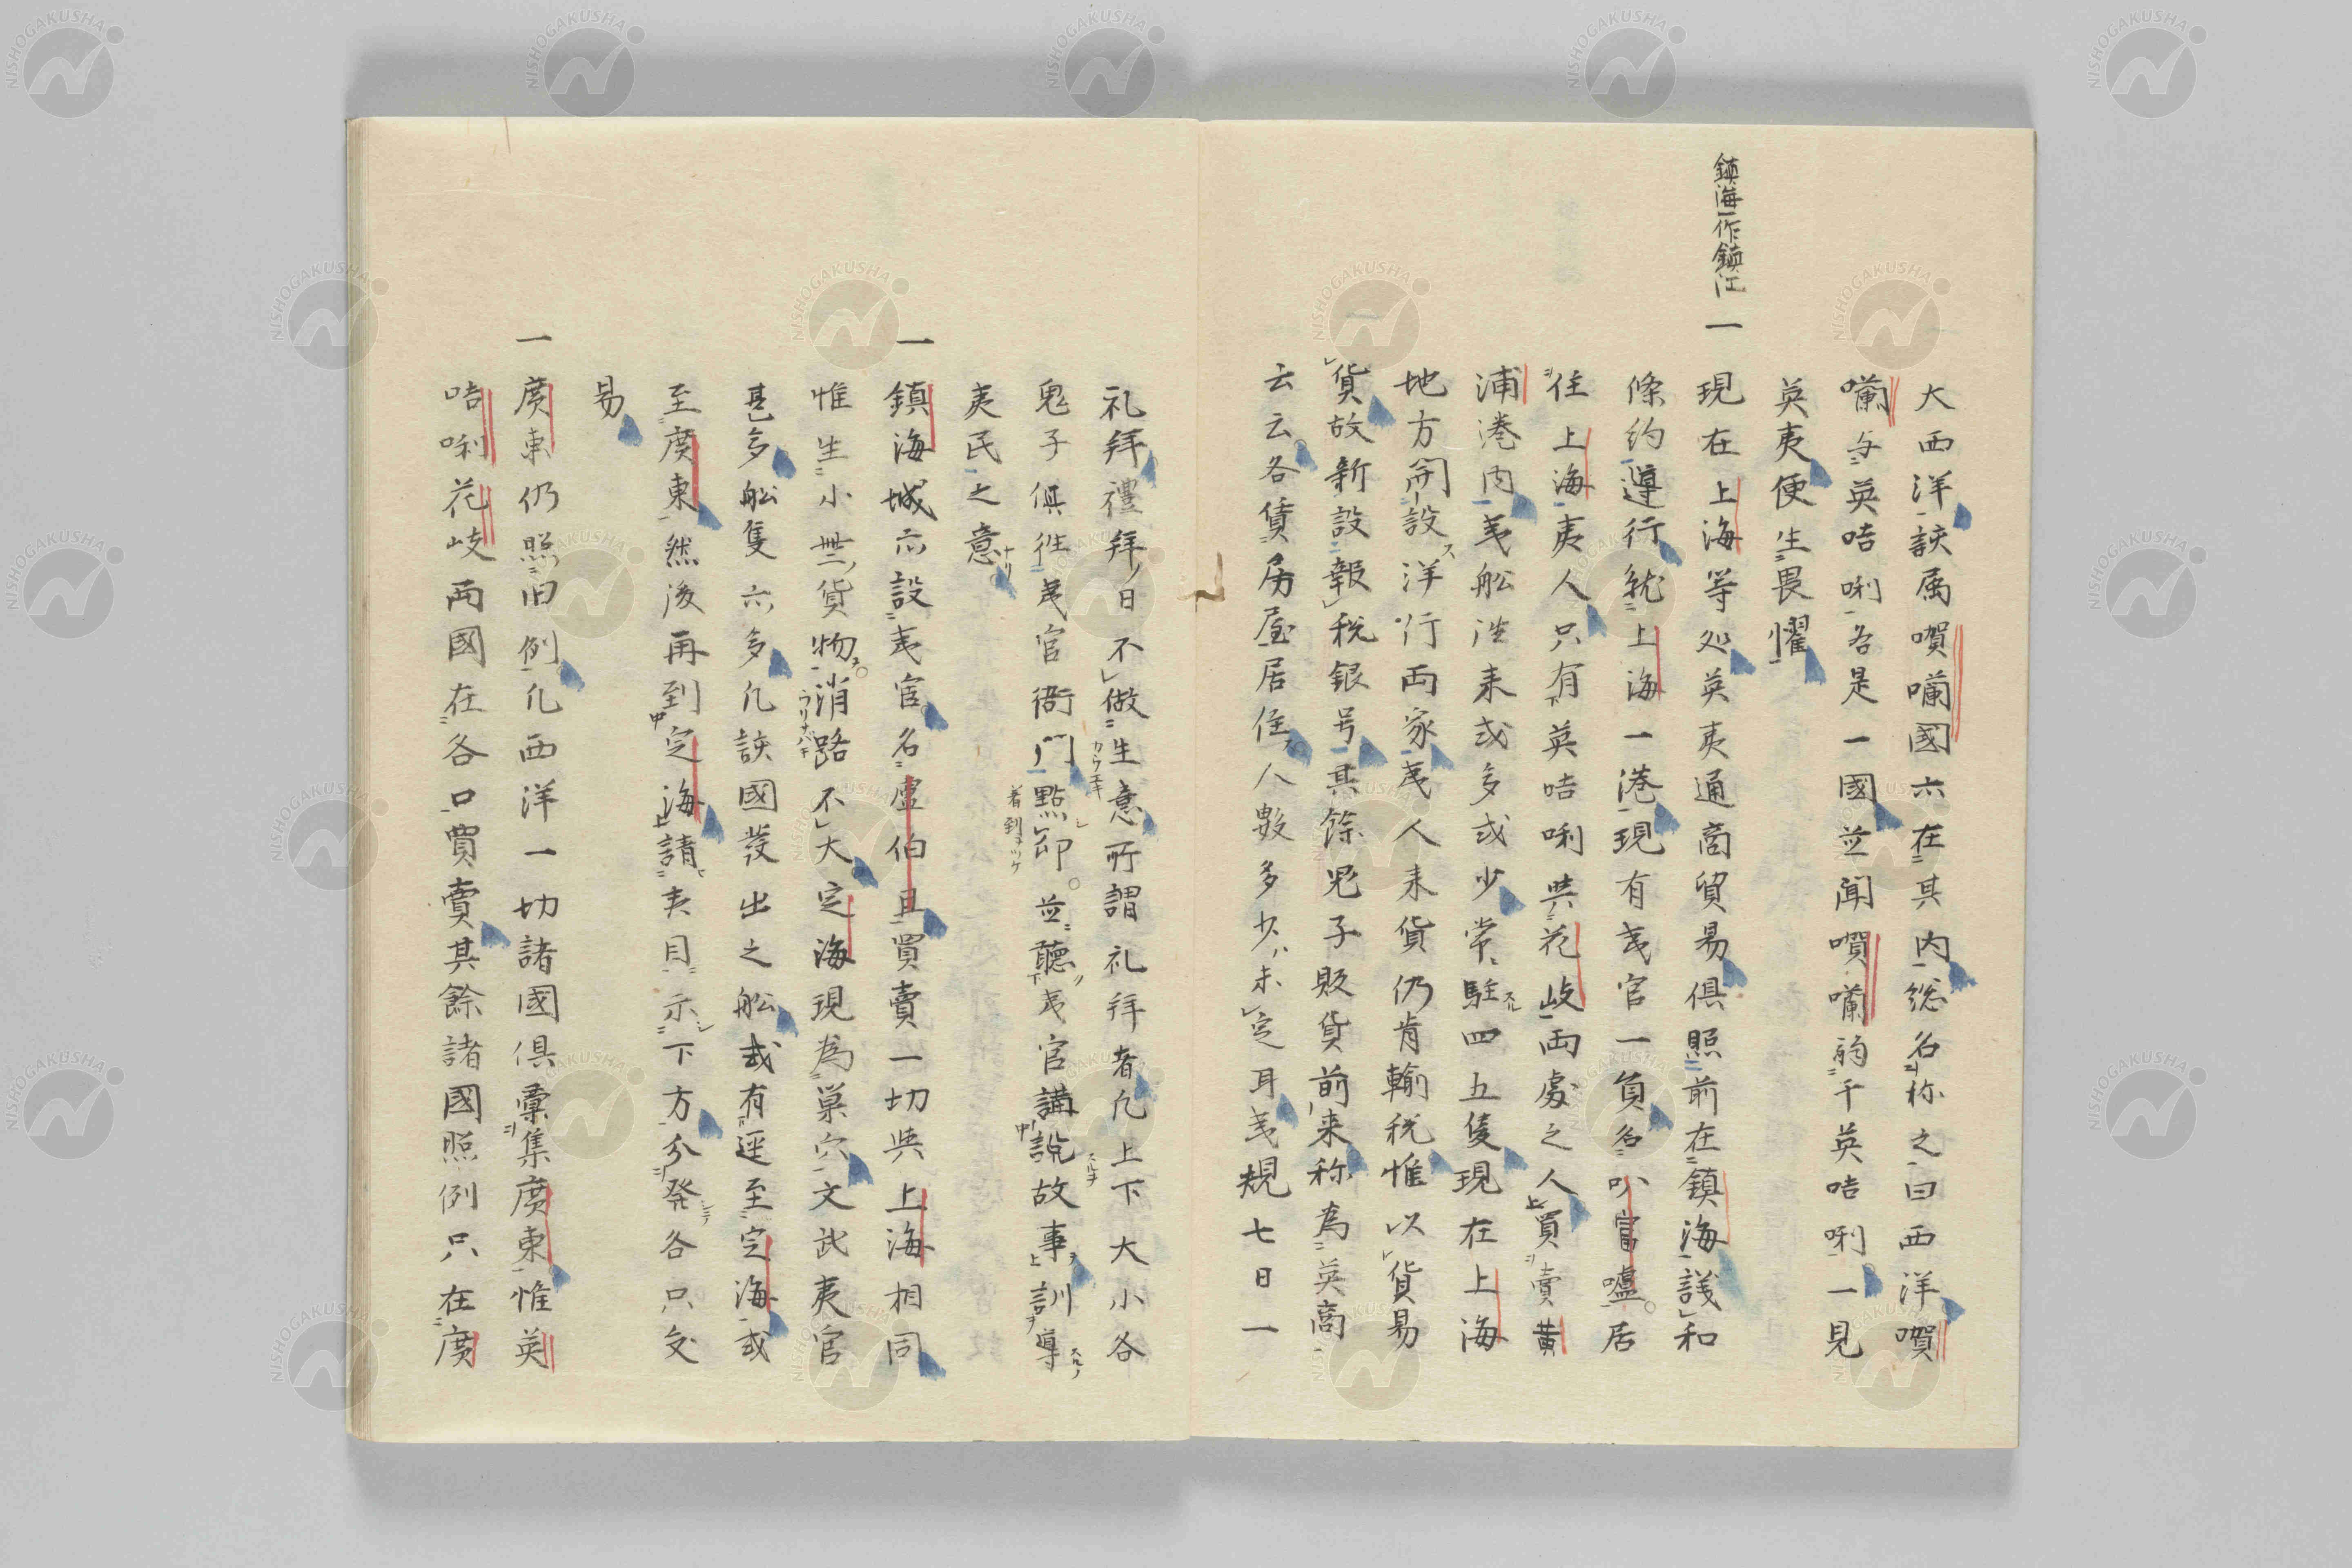 鎮海一作鎮江
大西洋諛属㗸囒國亦在其内総名称之曰西洋㗸
囒与英咭唎各是一國並聞㗸囒弱于英咭唎一見
英夷便生畏懼
一現在上海等処英夷通商貿易倶照前在鎮海議和
條約遵行就上海一港現有夷官一員名叫富嚧居
住上海夷人只有英咭唎與花岐両處之人買賣黄
浦港内夷舩往来或多或少常駐四五隻現在上海
地方開設洋行両家夷人来貨仍肯輸税惟以貨易
貨故新設報税銀号其餘鬼子販貨前来称為英商
云云各賃房屋居住人數多少未定耳夷規七日一
礼拜禮拜ノ日不做生意所謂礼拜者凡上下大小各
カウエキ
スルヲ
鬼子倶徃夷官衙門點卯並聽夷官講説故事訓導
着到ヲツケ
夷民之意
ナリ
一鎮海城亦設夷官名盧伯且買賣一切與上海相同
惟生小丗貨物消路不大定海現為巣穴文武夷官
甚多舩隻亦多凡諛國發出之舩或有逕至定海或
至廣東然後再到定海請夷目示下方分発各只交
易
一廣東仍照旧例凡西洋一切諸國倶彙集廣東惟英
咭唎花岐両國在各口買賣其餘諸國照例只在廣
NISHOGAKUSHA